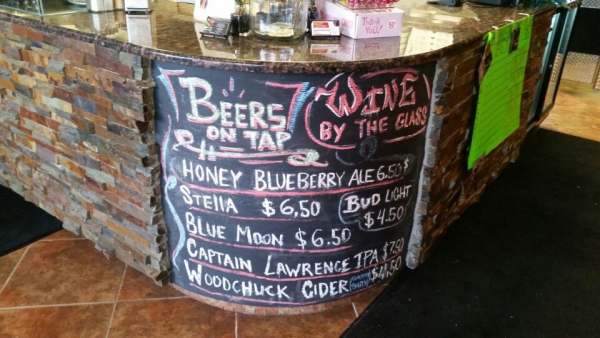 BEERS
ON TAP
WINE
BY THE GLASS
HONEY BLUEBERRY ALE 6.50$
STELLA $6,50
BUD LIGHT
$4.50
BLUE MOON $6.50
CAPTAIN LAWRENCE IPA $7.50
WOODCHUCK CIDER
THANK
YOU!